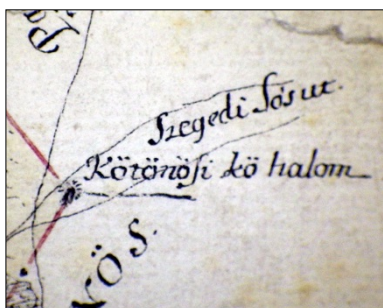 Szegedi Sós ut.
Kötönösi kö halom
NÖS.